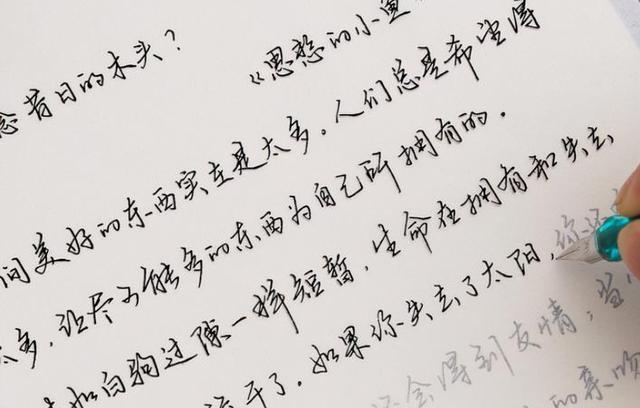 念昔日的木头？
《思愁的小鱼
间美好的东西实在是太多。人们总是希望得
太多，让尽可能多的东西为自己所拥有的．
如白驹过隙一样短暂，生命在拥有和失去
流干了．如果你失去了太阳，你还
还会得到友情；当
的亲吻